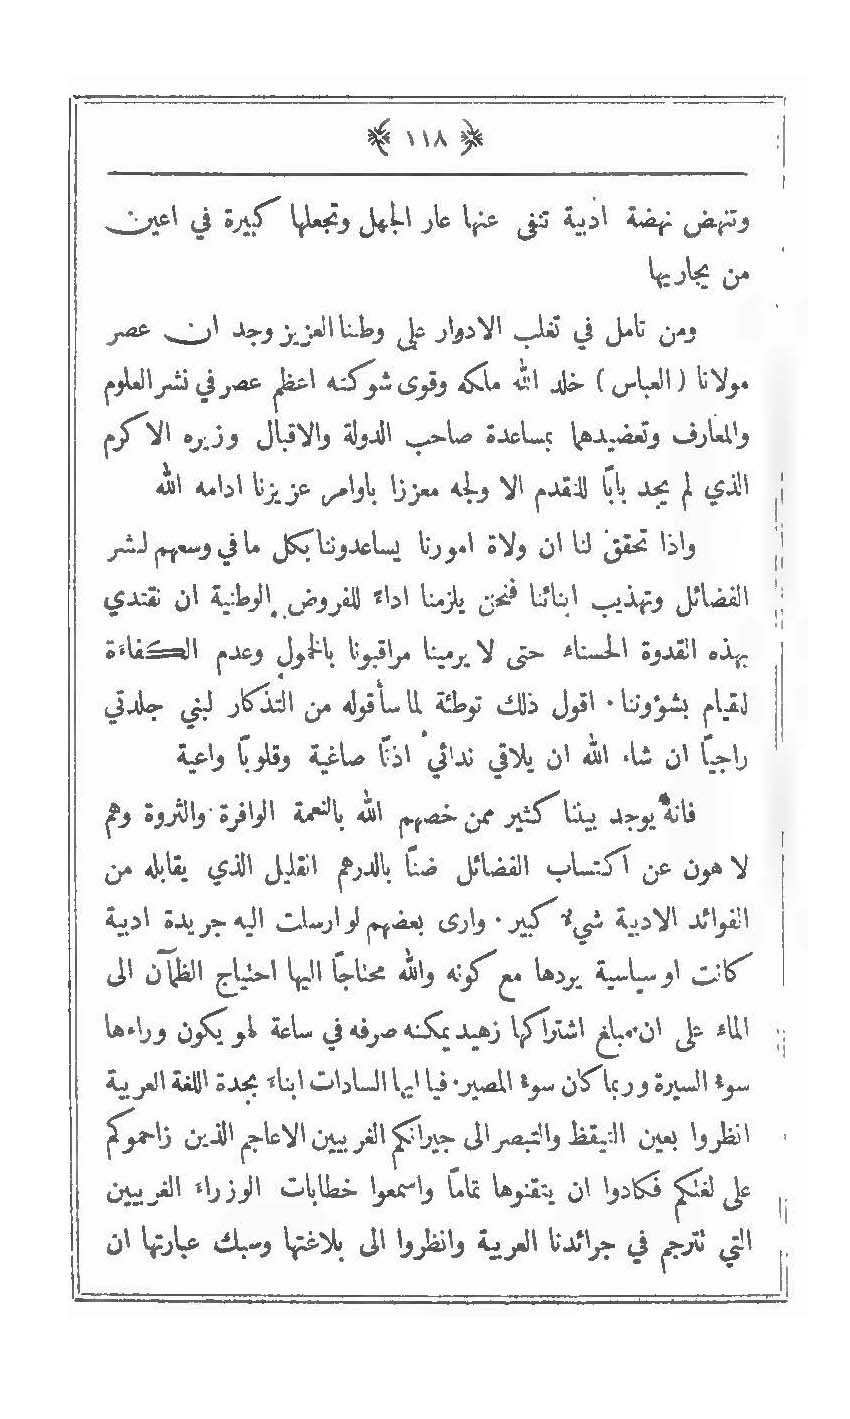 ١١٨
وتنهض نهضة ادبية تنفى عنها عار الجهل وتجعلها كبيرة في اعين
من يجاريها
ومن تامل في تغلب الادوار على وطننا العزيز وجد ان عصر
مولانا (العباس) خلد الله ملكه وقوى شوكته اعظم عصر في نشر العلوم
والمعارف وتعضيدهما بمساعدة صاحب الدولة والاقبال وزيره الاكرم
الذي لم يجد بابًا للتقدم الا ولجه معززا باوامر عزيزنا ادامه الله
واذا تحقق لنا ان ولاة امورنا يساعدوننا بكل ما في وسعهم لنشر
الفضائل وتهذيب ابنائنا فنحن يلزمنا اداءً للفروض الوطنية ان نقتدي
بهذه القدوة الحسناء حتى لا يرمينا مراقبونا بالخمول وعدم الكفاءة
للقيام بشؤوننا ٠ اقول ذلك توطئة لما سأقوله من التذكار لبني جلدتي
راجيًا ان شاء الله ان يلاقي ندائي اذنًا صاغية وقلوبًا واعية
فانه يوجد بيننا كثير ممن خصهم الله بالنعمة الوافرة والثروة وهم
لاهون عن اكتساب الفضائل ضنًا بالدرهم القليل الذي يقابله من
الفوائد الادبية شيء كبير ٠ وارى بعضهم لو ارسلت اليه جريدة ادبية
كانت او سياسية يردها مع كونه والله محتاجًا اليها احتياج الظمآن الى
الماء على ان مبلغ اشتراكها زهيد يمكنه صرفه في ساعة لهو يكون وراءها
سوء السيرة وربما كان سوء المصير ٠ فيا ايها السادات ابناء بجدة اللغة العربية
انظروا بعين التيقظ والتبصر الى جيرانكم الغربيين الاعاجم الذين زاحموكم
على لغتكم فكادوا ان يتقنوها تمامًا واسمعوا خطابات الوزراء الغربيين
التي تترجم في جرائدنا العربية وانظروا الى بلاغتها وسبك عبارتها ان